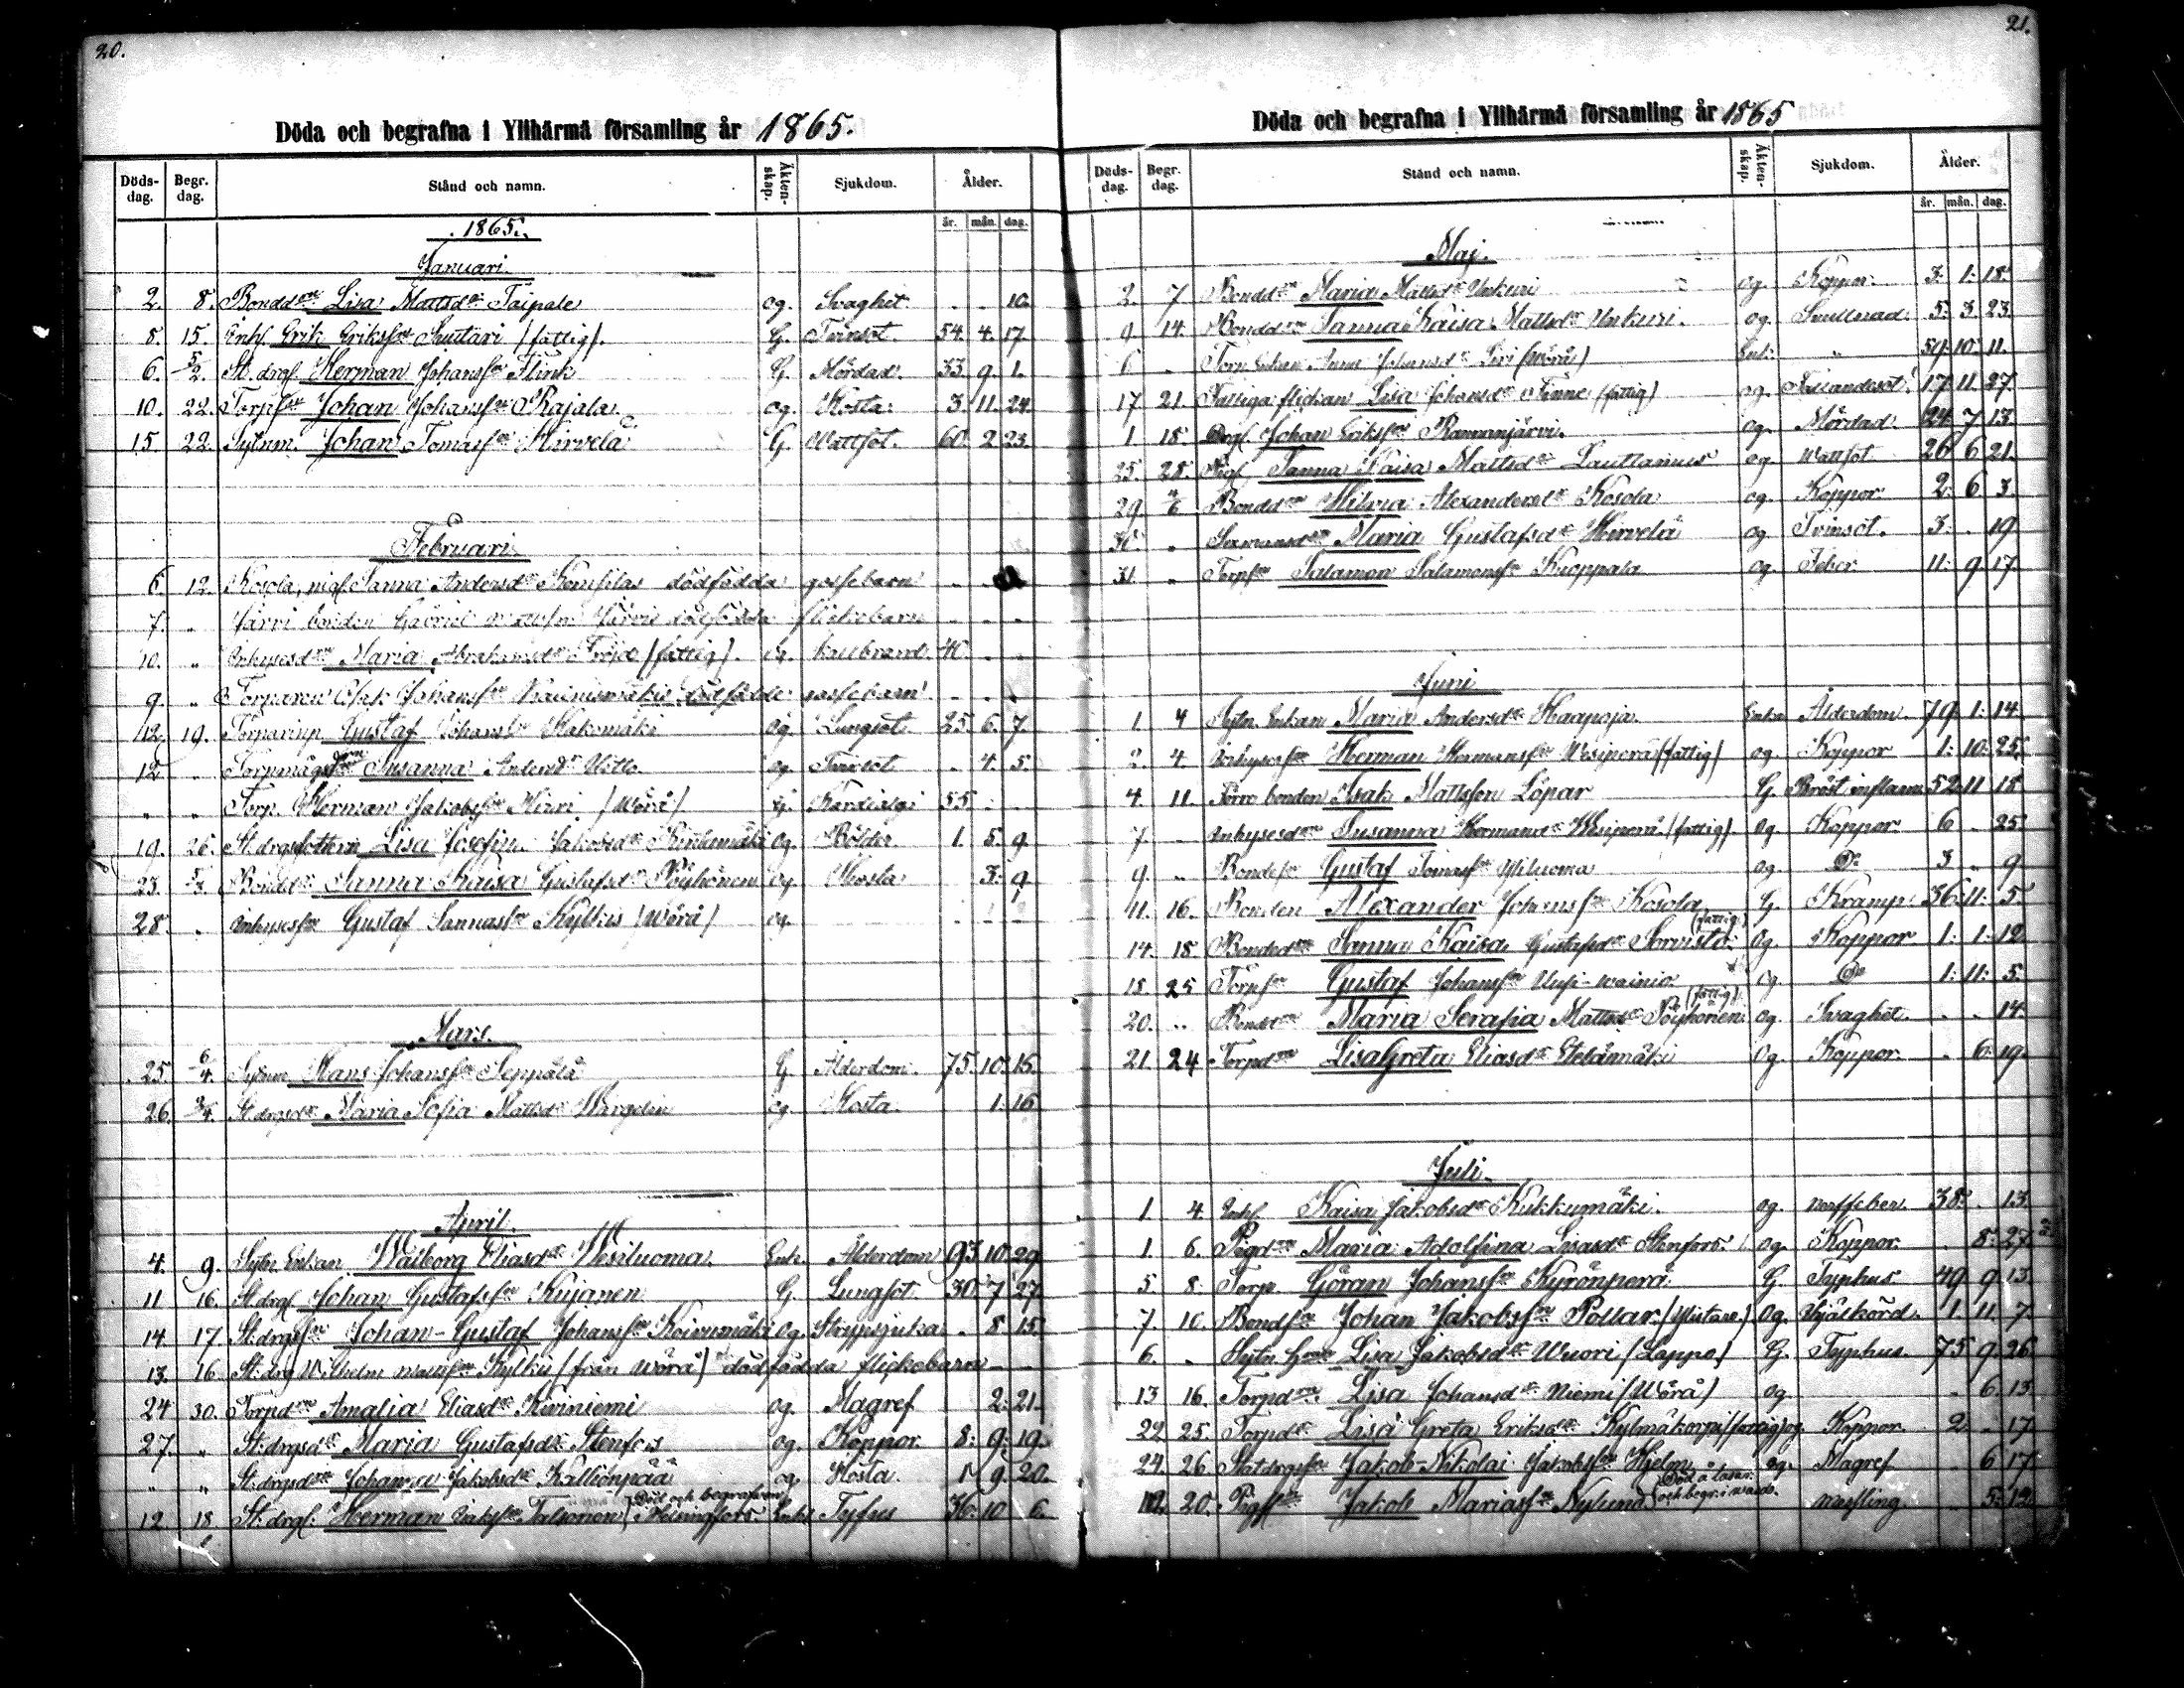 20.
Döda och begrafna i Ylihärmä församling år 1865.
Döds-dag. Begr. dag. Stånd och namn. Äkten-skap. Sjukdom. Ålder.
år. mån. dag.
1865.
Januari.
2. 8. Bondd:n Lisa Mattsd:r Taipale og. Svaghet. 10.
8. 15. Inh. Erik Eriksson Suutari (fattig). G. Tvinsot. 54. 4. 17.
6. 5/2. St. drgl. Herman Johansson Flink G. Mördad. 33. 9. 1.
10. 22. Torps:n Johan Johansson Rajala. og. Hosta. 3. 11. 24.
15. 22. Sytnm. Johan Tomasson Hirvelä G. Wattsot. 60. 2. 23.
Februari
6. 12. Kosola, Sanna Andersd:r dödfödda gossebarn
7. " Järvi bonden Gabriel dödfödda flickebarn
10. " Inhysesd:n Maria Abrahamsd:r (fattig). og. kallbrand. 40.
9. " Torparen Isak Johansson dödfödde gossebarn
12. 19. Gustaf Johansson og. Lungsot. 25. 6. 7.
12 " Susanna Andersd:r og. Tvinsot . 4. 5.
" " Torp. Herman Jakobsson (Wörå) G. Kardialgi 55.
19. 26. St. drgsdottern Lisa Josefin Jakobsd:r og. Bölder. 1. 5. 9.
23. 5/3. Bondd:r Sanna Kaisa Gustafsd:r Pöyhönen og Hosta 3. 9
28. " Inhysess:n Gustaf Kylkis (Wörå) og.
Mars.
25. 6/4. Sytnm Hans Johansson Seppälä G. Ålderdom. 75. 10. 15.
26. 3/4. St. drgsd:r Maria Sofia Mattsd:r og. Hosta. 1. 16
April.
4. 9. Sytn. Enkan Walborg Eliasd:r Wesiluoma. Enk. Ålderdom 93. 10. 29
11 16. St. drgl. Johan Gustafsson Kujanen G. Lungsot. 30. 7. 27.
14. 17. St: drgs:n Johan-Gustaf Johansson Koivumäki Og. Strypsjuka . 8. 15.
13. 16 St: drg Wilhelm Kylkis (från Wörå) dödfödda flickebarn
24 30. Torpd:n Amalia Eliasd:r Kiviniemi og. Magref 2. 21.
27. " St: drgsd:r Maria Gustafsd:r Stenfors og. Koppor. 8. 9. 19.
" " St. drgsd:r Johanna Jakobsd:r Kallionpää og. Hosta. 1. 9. 20.
12 18 St: drgl. Herman Talsonen (Död och begrafven i Helsingfors Enk. Tyfus 36. 10 6.
21.
Döda och begrafna i Ylihärmä församling år 1865
Döds-dag. Begr. dag. Stånd och namn. Äkten-skap. Sjukdom. Ålder.
år. mån. dag.
Maj.
2. 7 Bondd:n Maria Mattsd:r Unkuri og. Koppor. 3. 1. 18.
9. 14. Bondd:n Sanna Kaisa Mattsd:r Unkuri. og. 5. 3. 23
6 " Torp. Enkan Anna Johansd:r (Wörå) Enk. " 59. 10. 11.
17 21. Fattiga flickan Lisa Johansd:r Finne (fattig) og. Fallandesot 17. 11. 27.
1. 18. Drgl. Johan Eriksson og. Mördad. 24. 7 13
25. 28. Sanna Kaisa Mattsd:r Lauttamus og. Wattsot 26 6 21.
29. 4/6 Bondd:n Hilma Alexandersd:r Kosola og. Koppor. 2. 6 3
30. " Maria Gustafsd:r Hirvelä og. Tvinsot. 3. . 19
31. " Torps:n Salamon Salamonsson Kuoppala og. Feber 11. 9 17.
Juni
1. 4 Sytn. Enkan Maria Andersd:r Haapoja. Enka Ålderdom. 79. 1. 14
2. 4. Inhysess:n Herman Hermansson Wesiperä (fattig) og. Koppor 1. 10. 25.
4. 11. bonden Isak Mattsson Löpar G. Bröst inflamm. 52 11 18
7. Inhysesd:n Susanna Hermansd:r Wesiperä (fattig) og. Koppor. 6 . 25
9. " Bondes:n Gustaf Tomasson Yliluoma og. D:o 3 " 9
11. 16. Bonden Alexander Johansson Kosola. G. Kramp. 36. 11. 5.
14. 18. Bondd:n Sanna Kaisa Gustafsd:r Sorvisto (fattig) Og. Koppor 1. 1. 12
18. 25 Torps:n Gustaf Johansson Uusi-wainio. og. D:o 1. 11. 5.
20. " Bondd:n Maria Serafia Mattsd:r Pöyhönen (fattig) og. Svaghet. . . 14.
21. 24 Torpd:n Lisa Greta Eliasd:r Etelämäki Og. Koppor. . 6. 19.
Juli.
1. 4. Inh. Kaisa Jakobsd:r Kukkumäki. og. nerffeber. 38. . 13.
1. 6. Pigd:n Maria Adolfina Lisasd:r Stenfors. Og. Koppor. . 8. 27
5. 8. Torp. Göran Johansson Kyrönperä G. Typhus. 49. 9. 13.
7. 10. Bonds:n Johan Jakobsson Pollar. (Ylistaro) Og. Ihjälkörd. 1. 11. 7.
6. " Sytn. Lisa Jakobsd:r Wuori (Lappo) G. Typhus. 75. 9. 26
13 16. Torpd:n Lisa Johansd:r Niemi (Wörå) og. . 6. 13.
22 25. Torpd:r Lisa Greta Eriksd:r Kylmäkorpi (fattig) og. Koppor. 2. . 17.
24. 26. Statdrgs:n Jakob-Nikolai Jakobsson Hjelm og. Magref . 6 17
12. 20. Pigs:n Jakob Mariass:n Nylund. (Död å lasar. och begr. i wasa). messling. . 5. 12